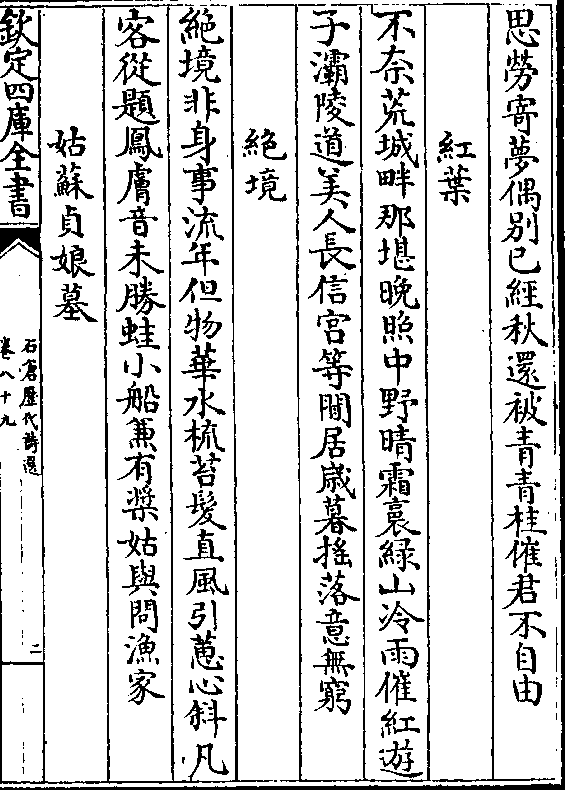 思勞寄夢偶别已經秋還被青青桂催君不自由
紅葉
不奈荒城畔那堪晚照中野晴霜裛緑山冷雨催紅遊
子灞陵道美人長信宫等閒居歲暮揺落意無窮
絶境
絶境非身事流年但物華水梳苔髮直風引蕙心斜凡
客從題鳳膚音未勝蛙小船兼有槳姑與問漁家
姑蘇貞娘墓
欽定四庫全書
石倉歴代詩選
卷八十九
二